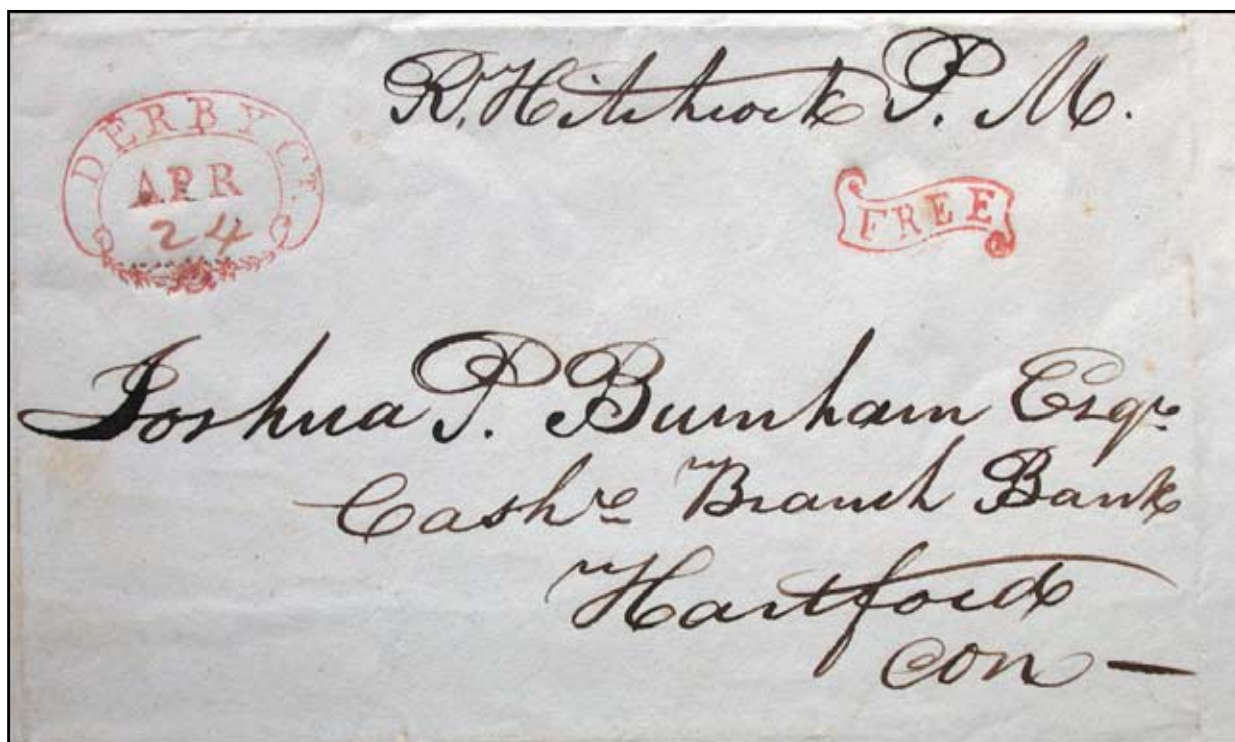 R. Hitchcock P. M.
DERBY CT.
APR
24
FREE
Joshua P. Burnham Esqre
Cashre Branch Bank
Hartford
Con —